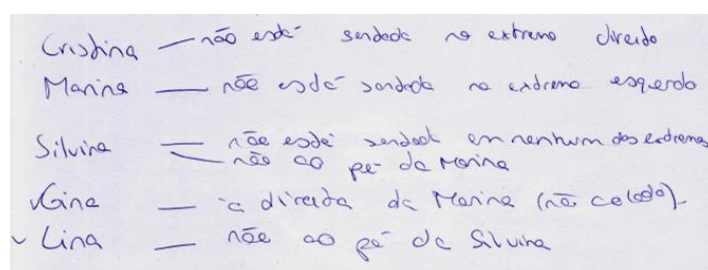 Cristina — não está sentada no extremo direito
Marina — não está sentada no extremo esquerdo
Silvina — não está sentada em nenhum dos extremos
— não ao pé da Marina
Gina — à direita da Marina (não colada).
Lina — não ao pé da Silvina